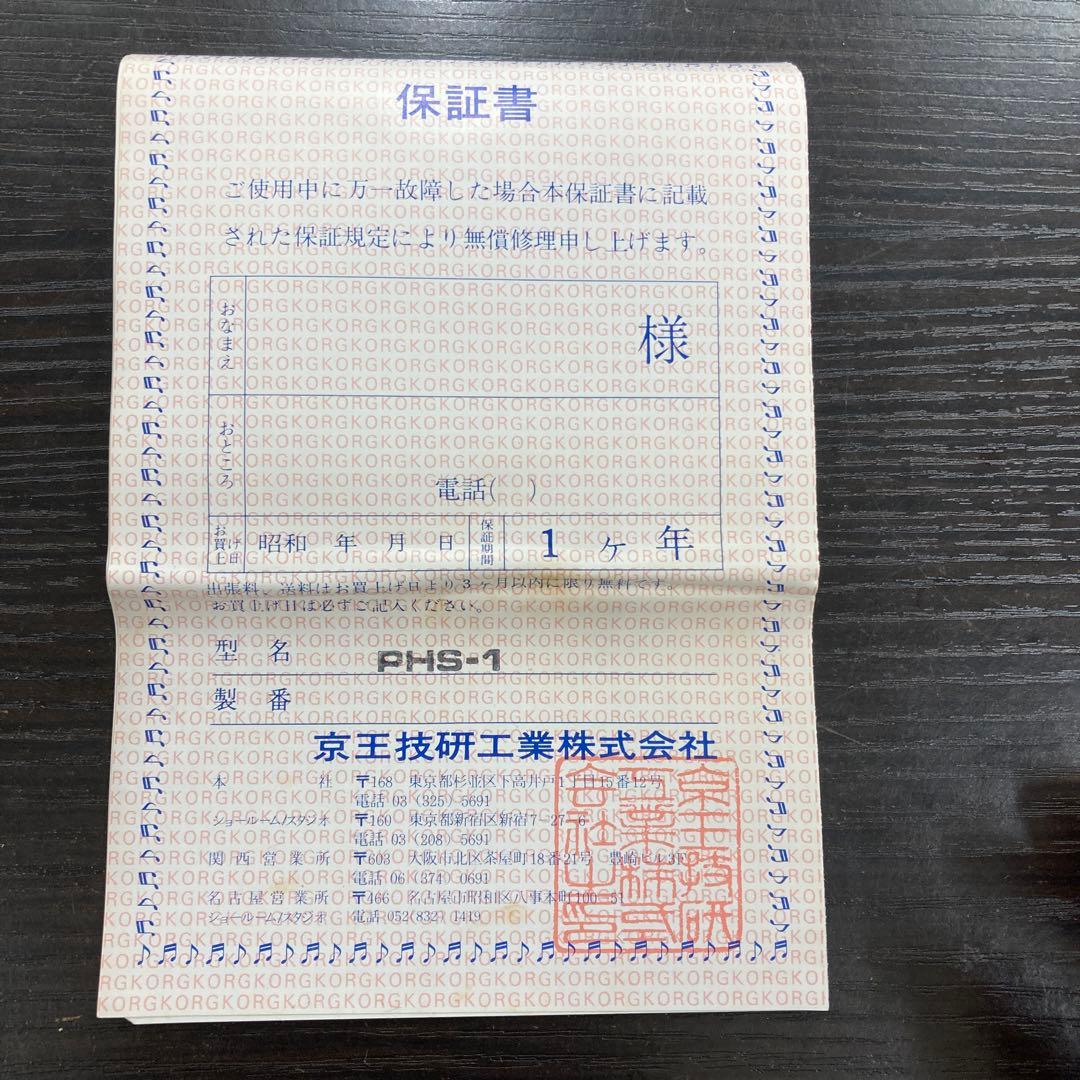 保証書
ご使用中に万一故障した場合本保証書に記載
された保証規定により無償修理申し上げます。
おなまえ 様
おところ 電話( )
お買上げ日 昭和 年 月 日 保証期間 1ヶ年
出張料、送料はお買上げ日より3ヶ月以内に限り無料です。
お買上げ日は必ずご記入ください。
型名 PHS-1
製番
京王技研工業株式会社
本社 〒168 東京都杉並区下高井戸1丁目15番12号
電話 03 (325) 5691
ショールーム/スタジオ 〒160 東京都新宿区新宿7-27-6
電話 03 (208) 5691
関西営業所 〒603 大阪市北区茶屋町18番21号 豊崎ビル3F
電話 06 (374) 0691
名古屋営業所 〒466 名古屋市昭和区八事本町100-51
ショールーム/スタジオ 電話 052 (832) 1419